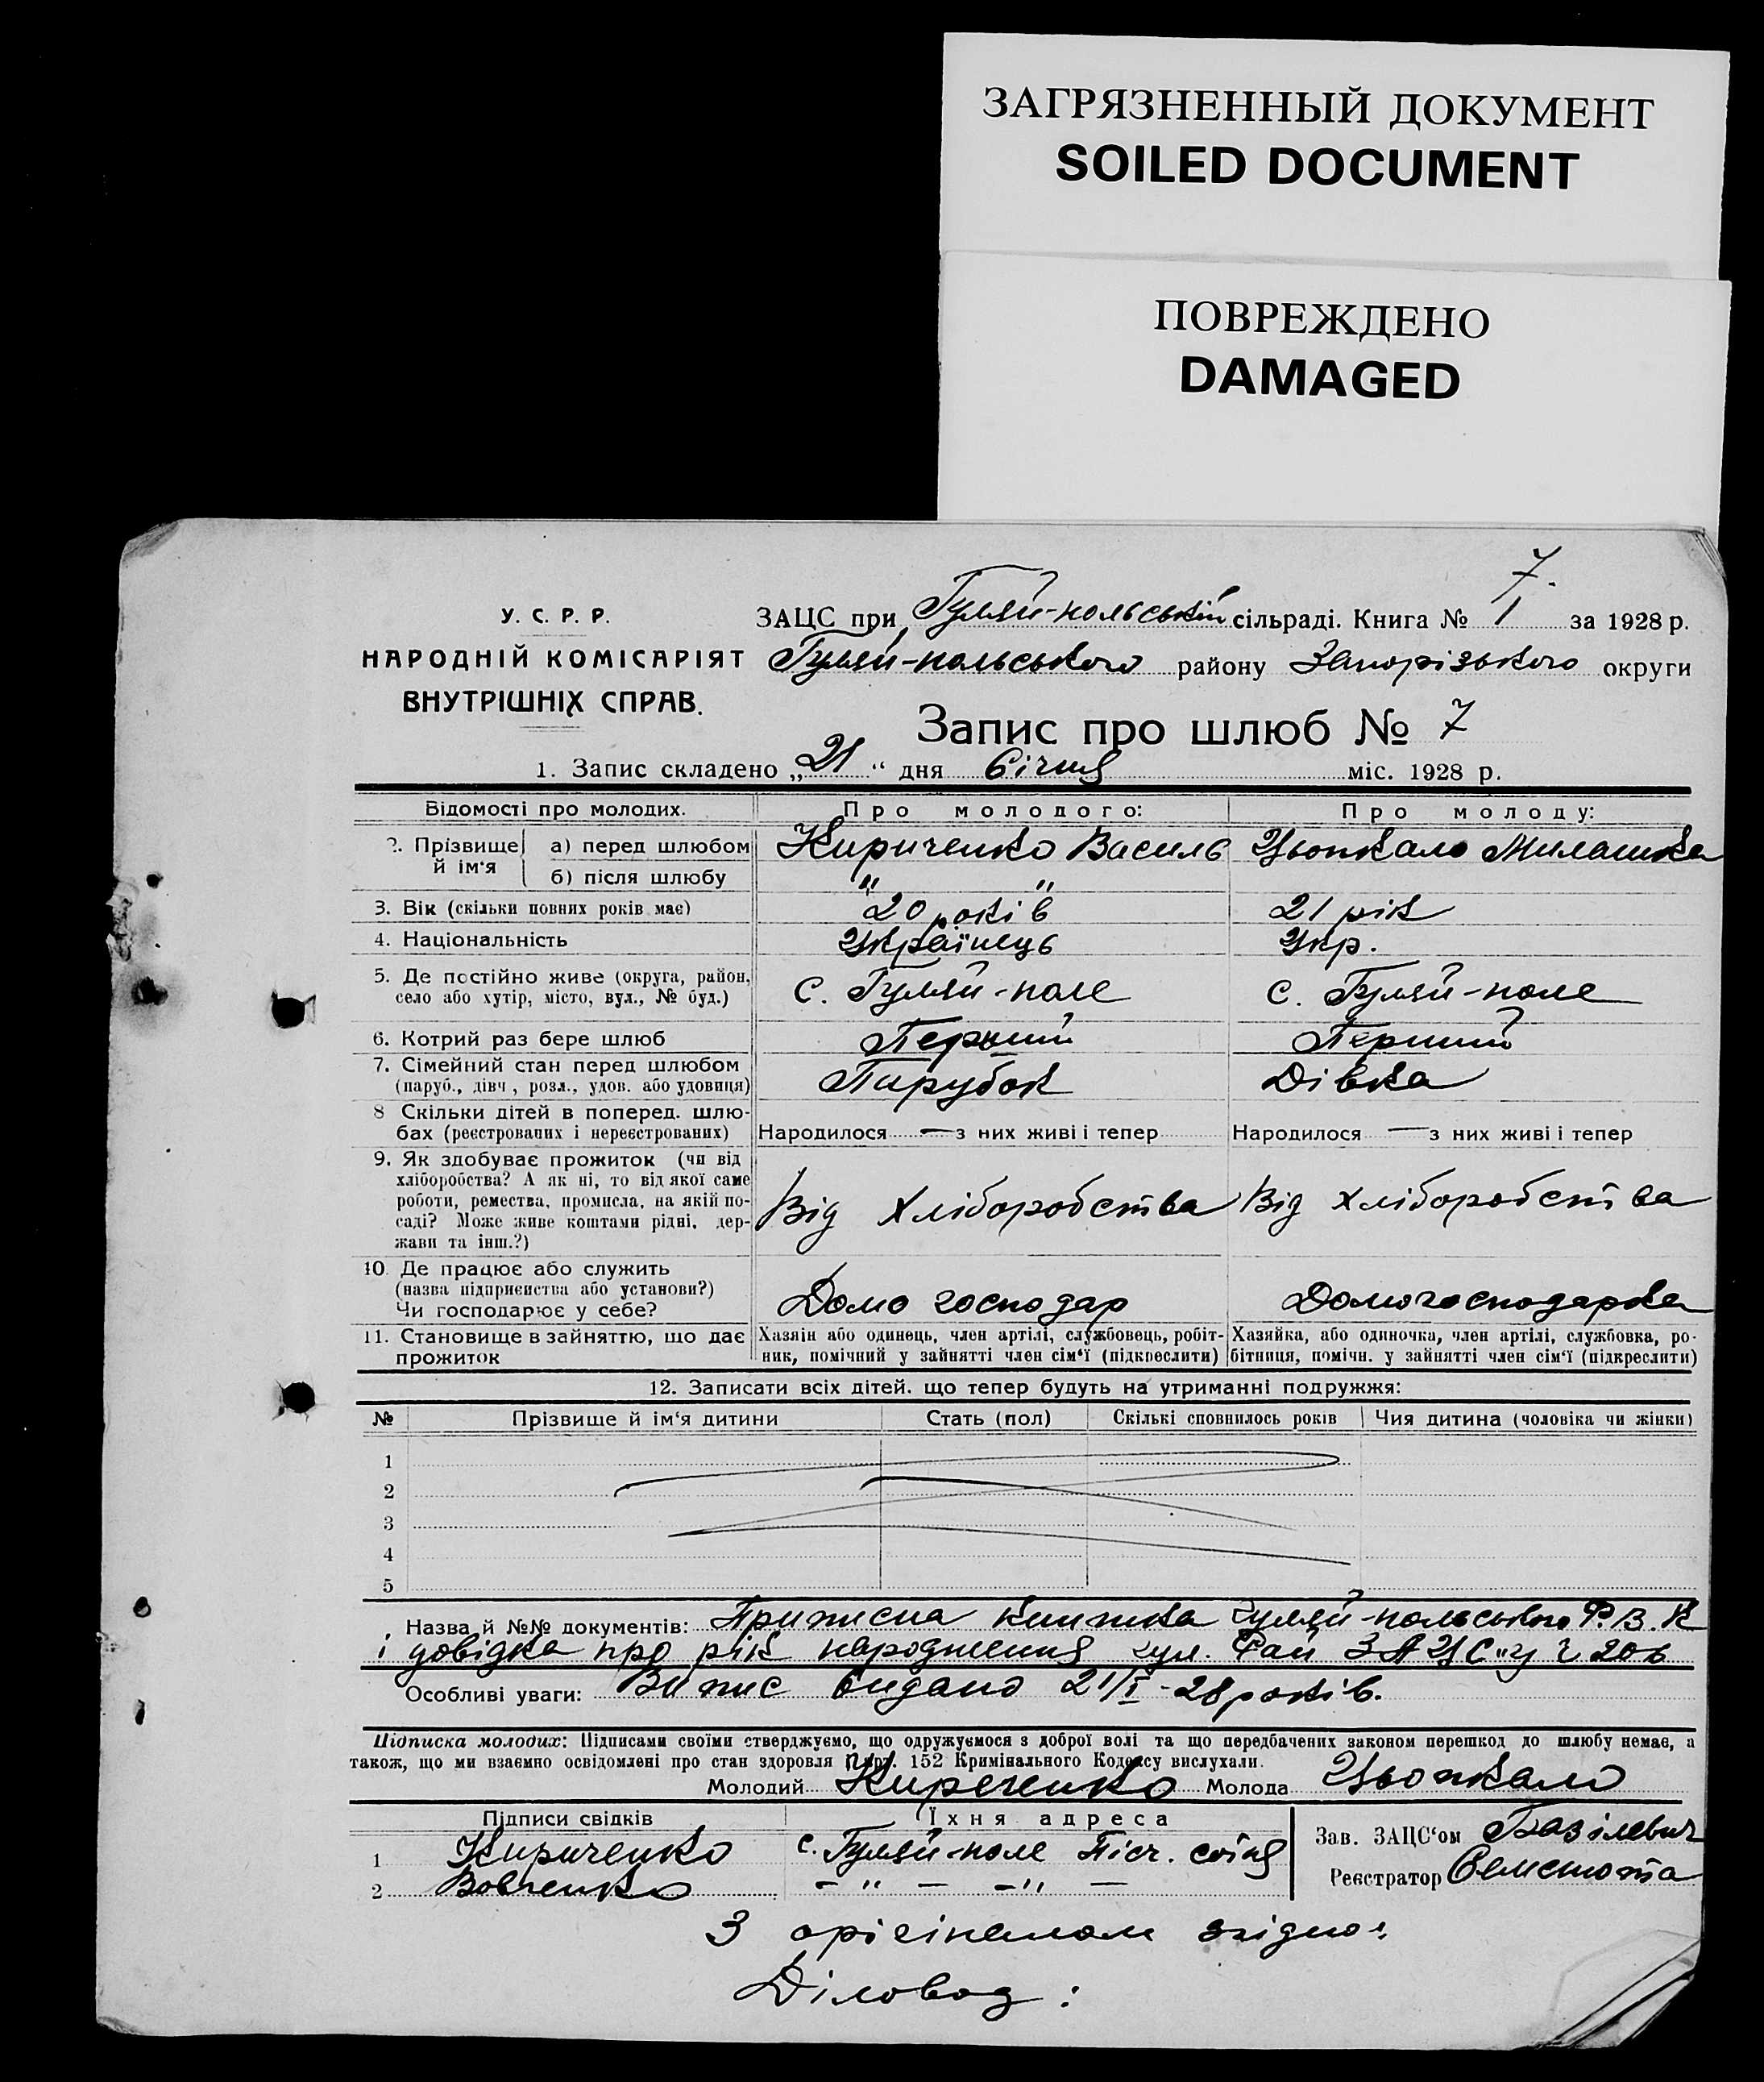 ЗАГРЯЗНЕННЫЙ ДОКУМЕНТ
SOILED DOCUMENT
ПОВРЕЖДЕНО
DAMAGED
7.
У. С. Р. Р.
НАРОДНІЙ КОМІСАРІЯТ
ВНУТРІШНІХ СПРАВ.
ЗАЦС при Гуляй-польській сільраді. Книга № 1 за 1928 р.
Гуляй-польського району Запорізького округи
Запис про шлюб № 7
1. Запис складено „21“ дня Січня міс. 1928 р.
Відомості про молодих. Про молодого: Про молоду:
2. Прізвище й ім‘я а) перед шлюбом Кириченко Василь Цьопкало Милашка
б) після шлюбу " "
3. Вік (скільки повних років має) 20 років 21 рік
4. Національність Українець Укр.
5. Де постійно живе (округа, район, село або хутір, місто, вул., № буд.) с. Гуляй-поле с. Гуляй-поле
6. Котрий раз бере шлюб Перший Перший
7. Сімейний стан перед шлюбом (паруб., дівч., розл., удов. або удовиця) Парубок Дівка
8 Скільки дітей в поперед. шлюбах (реєстрованих і нереєстрованих) Народилося — з них живі і тепер Народилося — з них живі і тепер
9. Як здобуває прожиток (чи від хліборобства? А як ні, то від якої саме роботи, ремества, промисла, на якій посаді? Може живе коштами рідні, держави та інш.?) Від хліборобства Від хліборобства
10. Де працює або служить (назва підприємства або установи?) Чи господарює у себе? Домо господар Домогосподарка
11. Становище в зайняттю, що дає прожиток Хазяін або одинець, член артілі, службовець, робітник, помічний у зайнятті член сім‘ї (підкреслити) Хазяйка, або одиночка, член артілі, службовка, робітниця, помічн. у зайнятті член сім‘ї (підкреслити)
12. Записати всіх дітей. що тепер будуть на утриманні подружжя:
№ Прізвище й ім‘я дитини Стать (пол) Скількі сповнилось років Чия дитина (чоловіка чи жінки)
1
2
3
4
5
Назва й №№ документів: Приписна книжка Гуляй-польського Р.В.К
і довідка про рік народження гул. Рай ЗАЦС"у
Особливі уваги: Випис видано 21/I-28 років.
Підписка молодих: Підписами своїми стверджуємо, що одружуємося з доброї волі та що передбачених законом перешкод до шлюбу немає, а
також, що ми взаємно освідомлені про стан здоровля 152 Кримінального Кодексу вислухали.
Молодий Киреченко Молода Цьопкало
Підписи свідків Їхня адреса
1 Кириченко с. Гуляй-поле Піст. сотня
2 Вовченко — " — — " —
Зав. ЗАЦС‘ом Базілевич
Реєстратор
З орігіналом згідно:
Діловод: